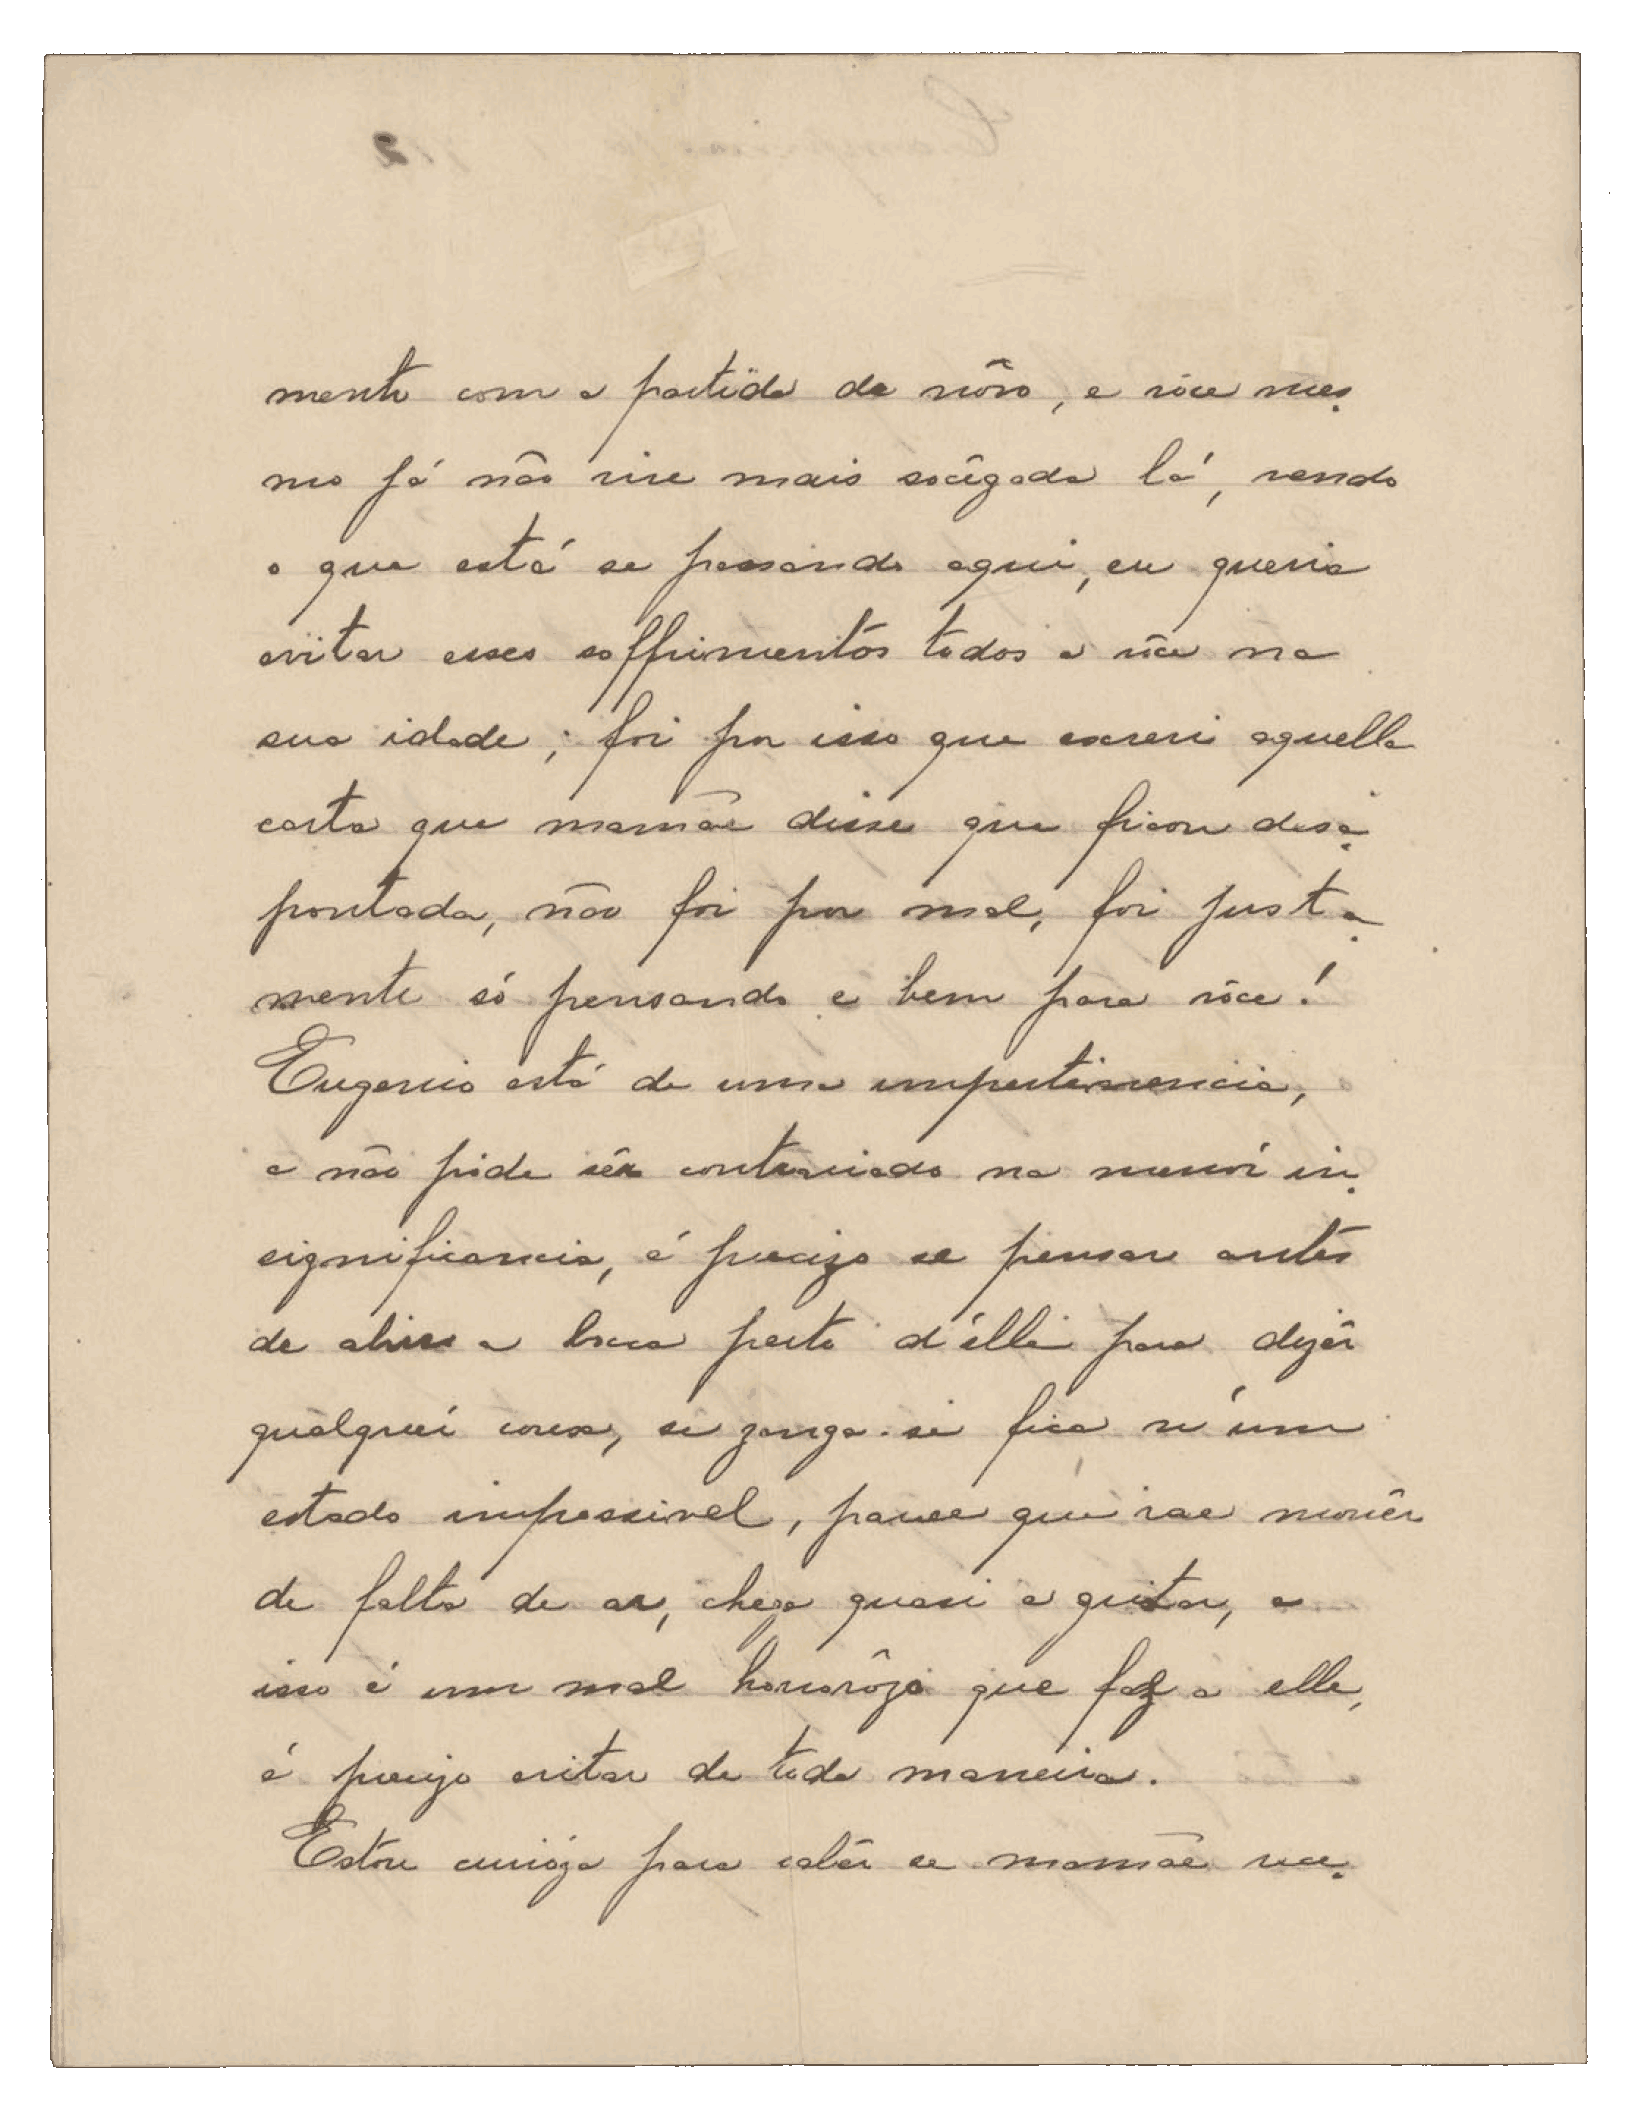 mente com a partida de nôvo, e vôce mes-
mo já não vive mais socêgada lá, vendo
o que está se passando aqui, eu queria
evitar esses soffrimentos todos a vôce na
sua idade; foi por isso que escrevi aquella
carta que mamãe disse que ficou desa-
pontada, não foi por mal, foi justa-
mente só pensando e bem para vôce!
Eugenio está de uma impertinencia,
e não póde sêr contrariado na menor in-
significancia, é precizo se pensar antes
de abrir a bocca perto d'élle para dizêr
qualquer cousa, si zanga-se fica n'um
estado impossivel, parece que vae morrêr
de falta de ar, chega quasi a gritar, e
isso é um mal horrorôzo que faz a elle,
é precizo evitar de toda maneira.
Estou curióza para sabêr se mamãe rece-